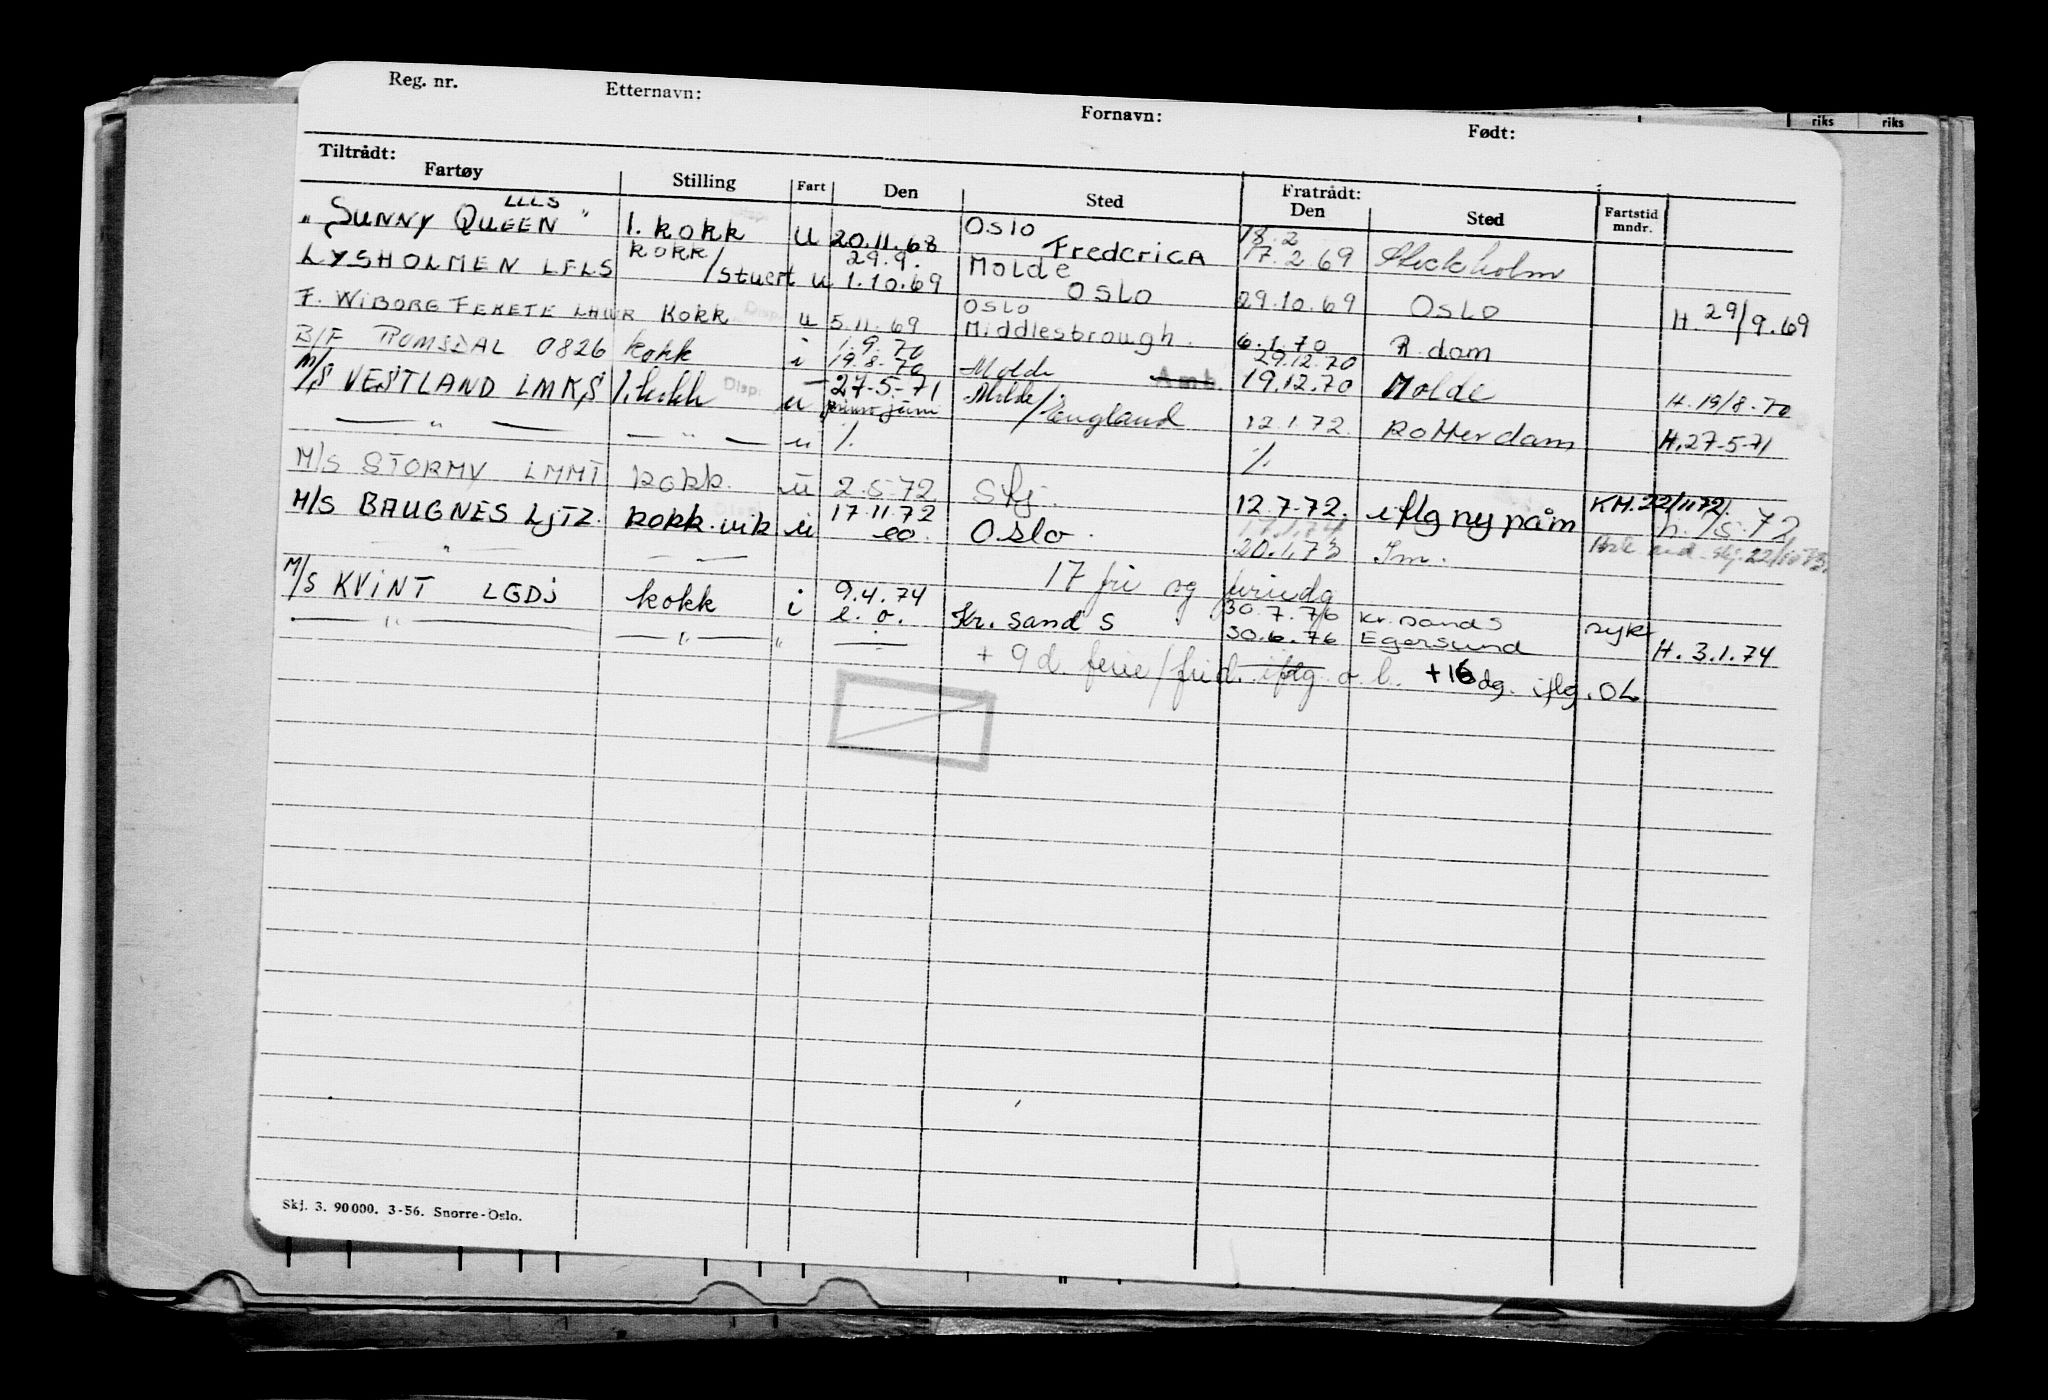 Reg. nr. Etternavn: Fornavn: Født:
riks riks
Tiltrådt: Fratrådt:
Fartøy Stilling Fart Den Sted Den Sted Fartstid mndr.
LLLS
"SUNNY QUEEN" 1. kokk u 20.11.68 Oslo 18.2
Frederica 17.2 69 Stockholm
LYSHOLMEN LFLS kokk/stuert u 29.9. 1.10.69 Molde Oslo 29.10.69 Oslo H. 29/9.69
F. WIBORG FEKETE LHWR Kokk u 5.11.69 Oslo Middlesbrough. 6.1.70 R.dam
B/F ROMSDAL 0826 kokk i 1.9.70 29.12.70
i 19.8.70 Molde Amb. 19.12.70 Molde H. 19/8.70
M/S VESTLAND LMKS 1. kokk u 27-5-71 primo juni Molde/England 12.1.72. Rotterdam H.27-5-71
— " — — " — u % %
M/S STORMY LMMT kokk. u 2.5.72 Skj. 12.7.72. iflg ny påm KM.22/11 72. h. /5.72
M/S BAUGNES LJTZ. kokk.vik u 17.11.72 eo. Oslo. 17.1.74
" 20.1.73 Tm.
17 fri og feriedg
M/S KVINT LGDJ kokk i 9.4.74 30.7.76 Kr.sand S syk
— " — — " — " l. o. Kr. sand S 30.6.76 Egersund H. 3.1.74
+ 9 d. ferie/frid. iflg o.l. +16 dg. iflg. OL
Skj. 3. 90000. 3-56. Snorre-Oslo.